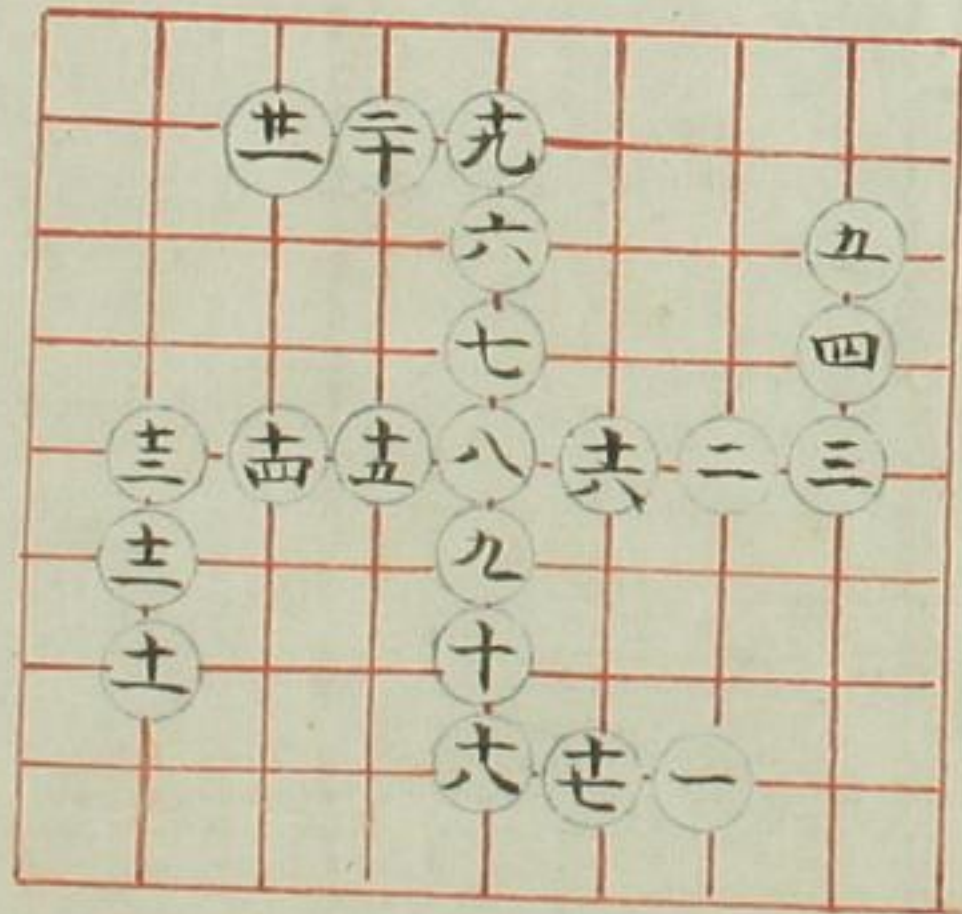 廿一 二十 十九
六 五
七 四
十三 十四 十五 八 十六 二 三
十二 九
十一 十
十八 十七 一